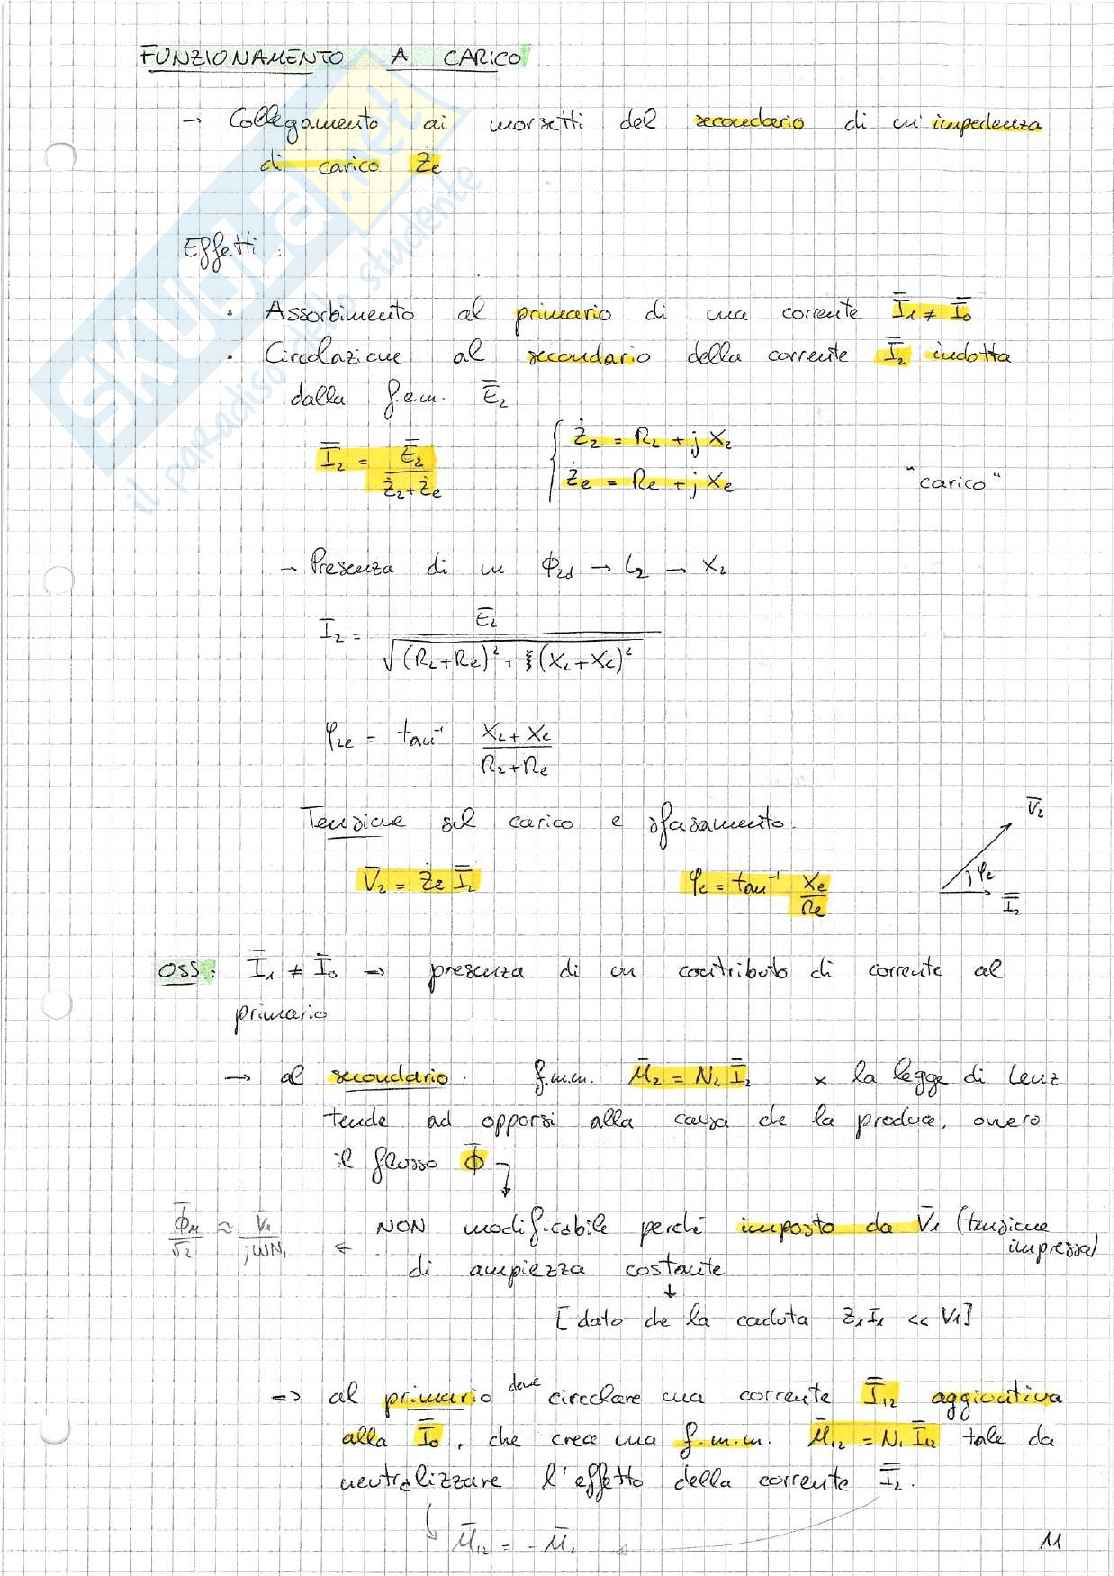 FUNZIONAMENTO A CARICO
→ Collegamento ai morsetti del secondario di un'impedenza
di carico Że
Effetti:
· Assorbimento al primario di una corrente Ī₁ ≠ Ī₀
· Circolazione al secondario della corrente Ī₂ indotta
dalla f.e.m. Ē₂
Ī₂ = Ē₂ / (Ż₂ + Że)
{ Ż₂ = R₂ + j X₂
Że = Re + j Xe "carico"
→ Presenza di un ϕ₂d → L₂ → X₂
I₂ = Ē₂ / √((R₂+Re)² + (X₂+Xe)²)
φ₂e = tan⁻¹ (X₂ + Xe) / (R₂ + Re)
Tensione sul carico e sfasamento.
V̄₂ = Że Ī₂ φe = tan⁻¹ Xe / Re
V̄₂
φe
Ī₂
OSS: Ī₁ ≠ Ī₀ → presenza di un contributo di corrente al
primario
→ al secondario: f.m.m. M̄₂ = N₂ Ī₂ x la legge di Lenz
tende ad opporsi alla causa che la produce, ovvero
il flusso Φ̄
Φ̄M / √2 ≈ V̄₁ / jωN₁ ← NON modificabile perché imposto da V̄₁ (tensione
impressa)
di ampiezza costante
↓
[dato che la caduta Z₁I₁ << V₁]
=> al primario deve circolare una corrente Ī₁₂ aggiuntiva
alla Ī₀, che crea una f.m.m. M̄₁₂ = N₁ Ī₁₂ tale da
neutralizzare l'effetto della corrente Ī₂.
M̄₁₂ = - M̄₂
11
SKUOLA.net
il paradiso dello studente